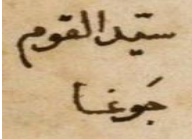 سيّد القوم
جَوغَا